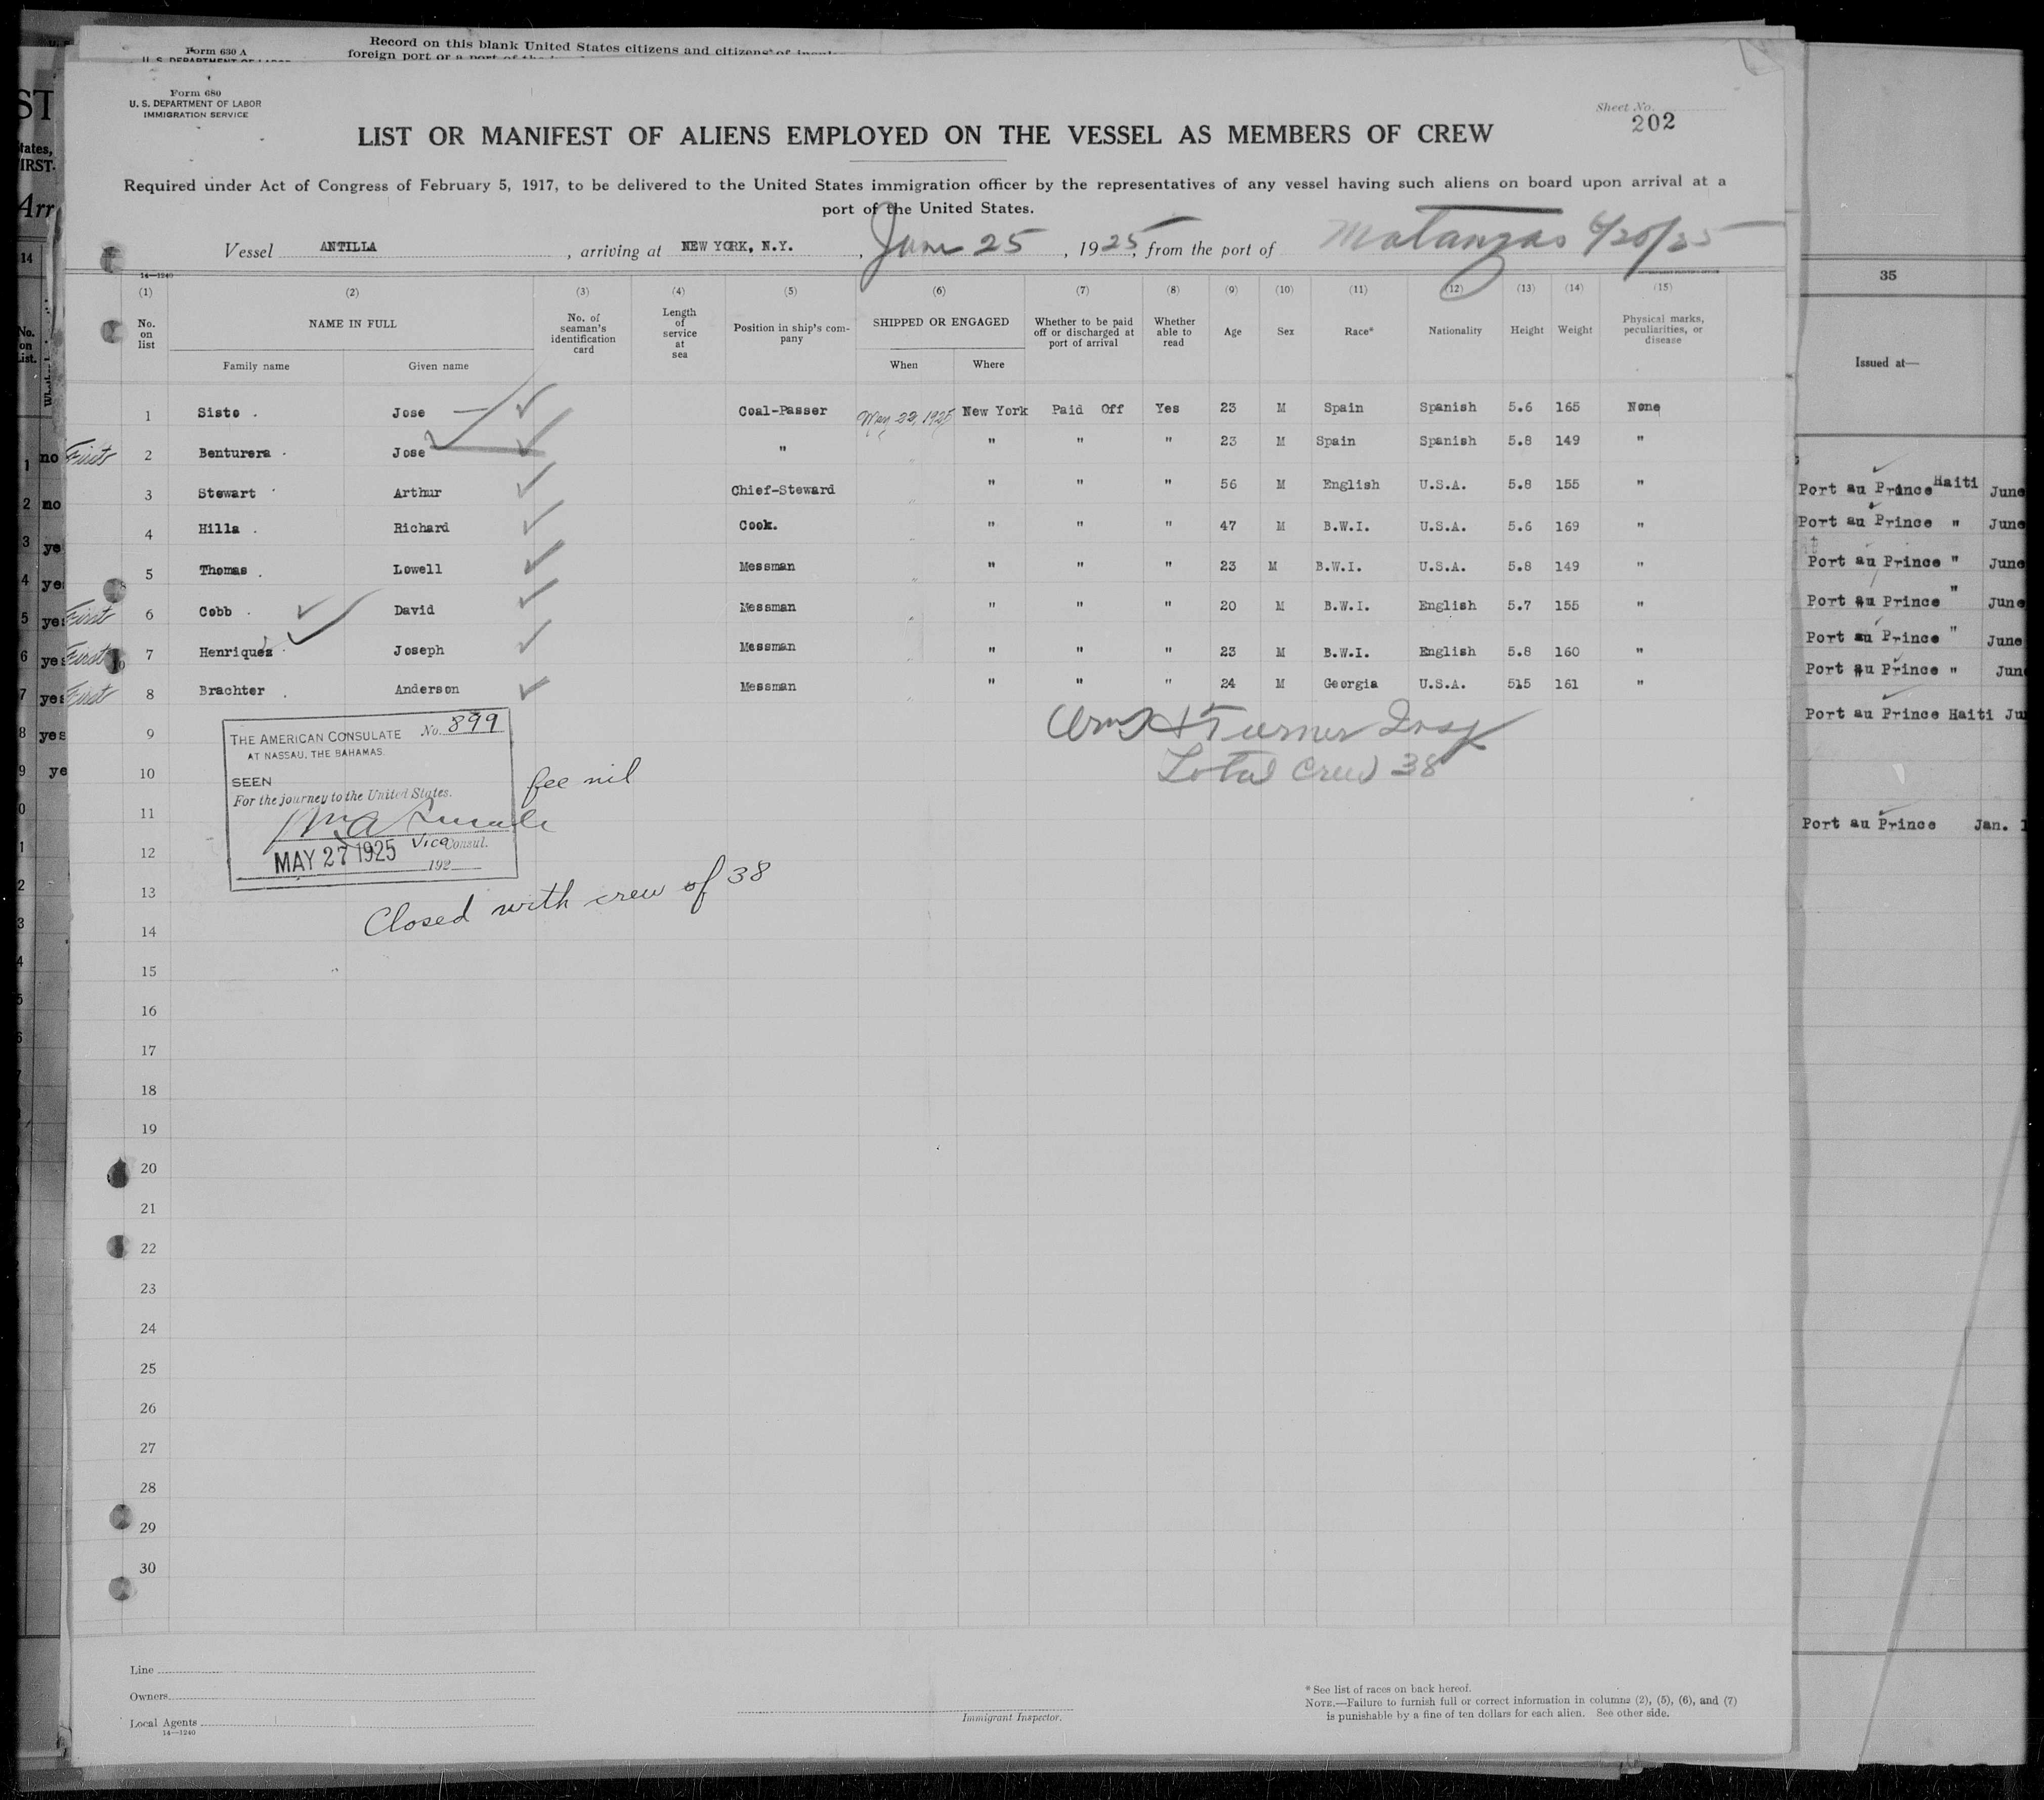 Form 630 A
Record on this blank United States citizens and citizens of
foreign port or a port of the
Form 680
U. S. DEPARTMENT OF LABOR
IMMIGRATION SERVICE
Sheet No.
202
LIST OR MANIFEST OF ALIENS EMPLOYED ON THE VESSEL AS MEMBERS OF CREW
Required under Act of Congress of February 5, 1917, to be delivered to the United States immigration officer by the representatives of any vessel having such aliens on board upon arrival at a
port of the United States.
Vessel ANTILLA, arriving at NEW YORK, N.Y., June 25, 1925, from the port of Matanzas 6/20/25
14—1240
(1) (2) (3) (4) (5) (6) (7) (8) (9) (10) (11) (12) (13) (14) (15)
No. on list NAME IN FULL No. of seaman's identification card Length of service at sea Position in ship's company SHIPPED OR ENGAGED Whether to be paid off or discharged at port of arrival Whether able to read Age Sex Race* Nationality Height Weight Physical marks, peculiarities, or disease
Family name Given name When Where
1 Sisto . Jose Coal-Passer May 22, 1925 New York Paid Off Yes 23 M Spain Spanish 5.6 165 None
First 2 Benturera . Jose " " " " 23 M Spain Spanish 5.8 149 "
3 Stewart Arthur Chief-Steward " " " 56 M English U.S.A. 5.8 155 "
4 Hilla . Richard Cook. " " " 47 M B.W.I. U.S.A. 5.6 169 "
5 Thomas . Lowell Messman " " " 23 M B.W.I. U.S.A. 5.8 149 "
First 6 Cobb . David Messman " " " 20 M B.W.I. English 5.7 155 "
First 7 Henriques . Joseph Messman " " " 23 M B.W.I. English 5.8 160 "
First 8 Brachter . Anderson Messman " " " 24 M Georgia U.S.A. 515 161 "
9
10
11
12
13
14
15
16
17
18
19
20
21
22
23
24
25
26
27
28
29
30
THE AMERICAN CONSULATE No. 899
AT NASSAU, THE BAHAMAS.
SEEN
For the journey to the United States.
fee nil
Vice Consul.
MAY 27 1925 192
Closed with crew of 38
Wm H Turner Insp
Total Crew 38
Line
Owners
Local Agents
14—1240
Immigrant Inspector.
* See list of races on back hereof.
NOTE.—Failure to furnish full or correct information in columns (2), (5), (6), and (7)
is punishable by a fine of ten dollars for each alien. See other side.
35
Issued at—
Port au Prince Haiti June
Port au Prince " June
Port au Prince " June
Port au Prince " June
Port au Prince " June
Port au Prince " Jun
Port au Prince Haiti Ju
Port au Prince Jan. 1